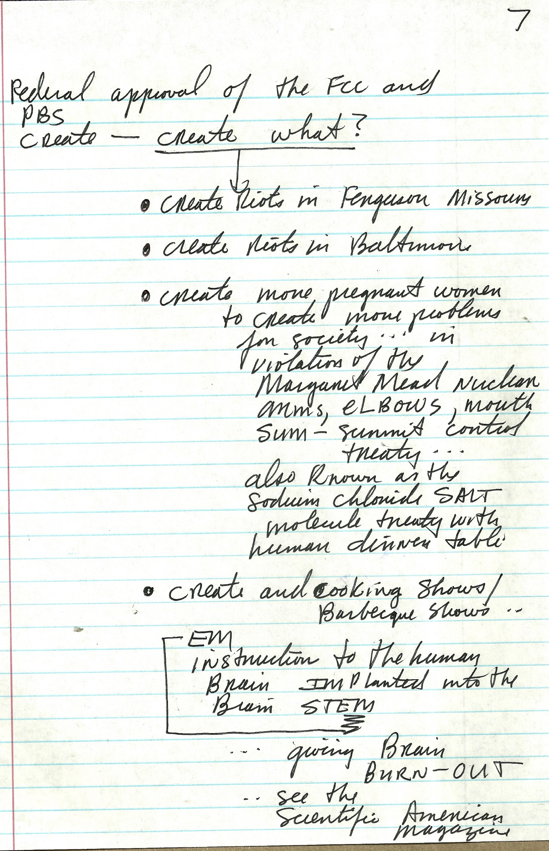 7
Federal approval of the FCC and
PBS
create — create what?
• create Riots in Ferguson Missouri
• create riots in Baltimore
• create more pregnant women
to create more problems
for society ... in
violation of the
Margaret Mead nuclear
arms, eLBOWS, mouth
sum - summit control
treaty ...
also known as the
Sodium chloride SALT
molecule treaty with
human dinner table
• create and cooking shows/
Barbecque shows ..
EM
instruction to the human
Brain IMPlanted into the
Brain STEM
... giving Brain
BURN-OUT
.. see the
Scientific American
magazine